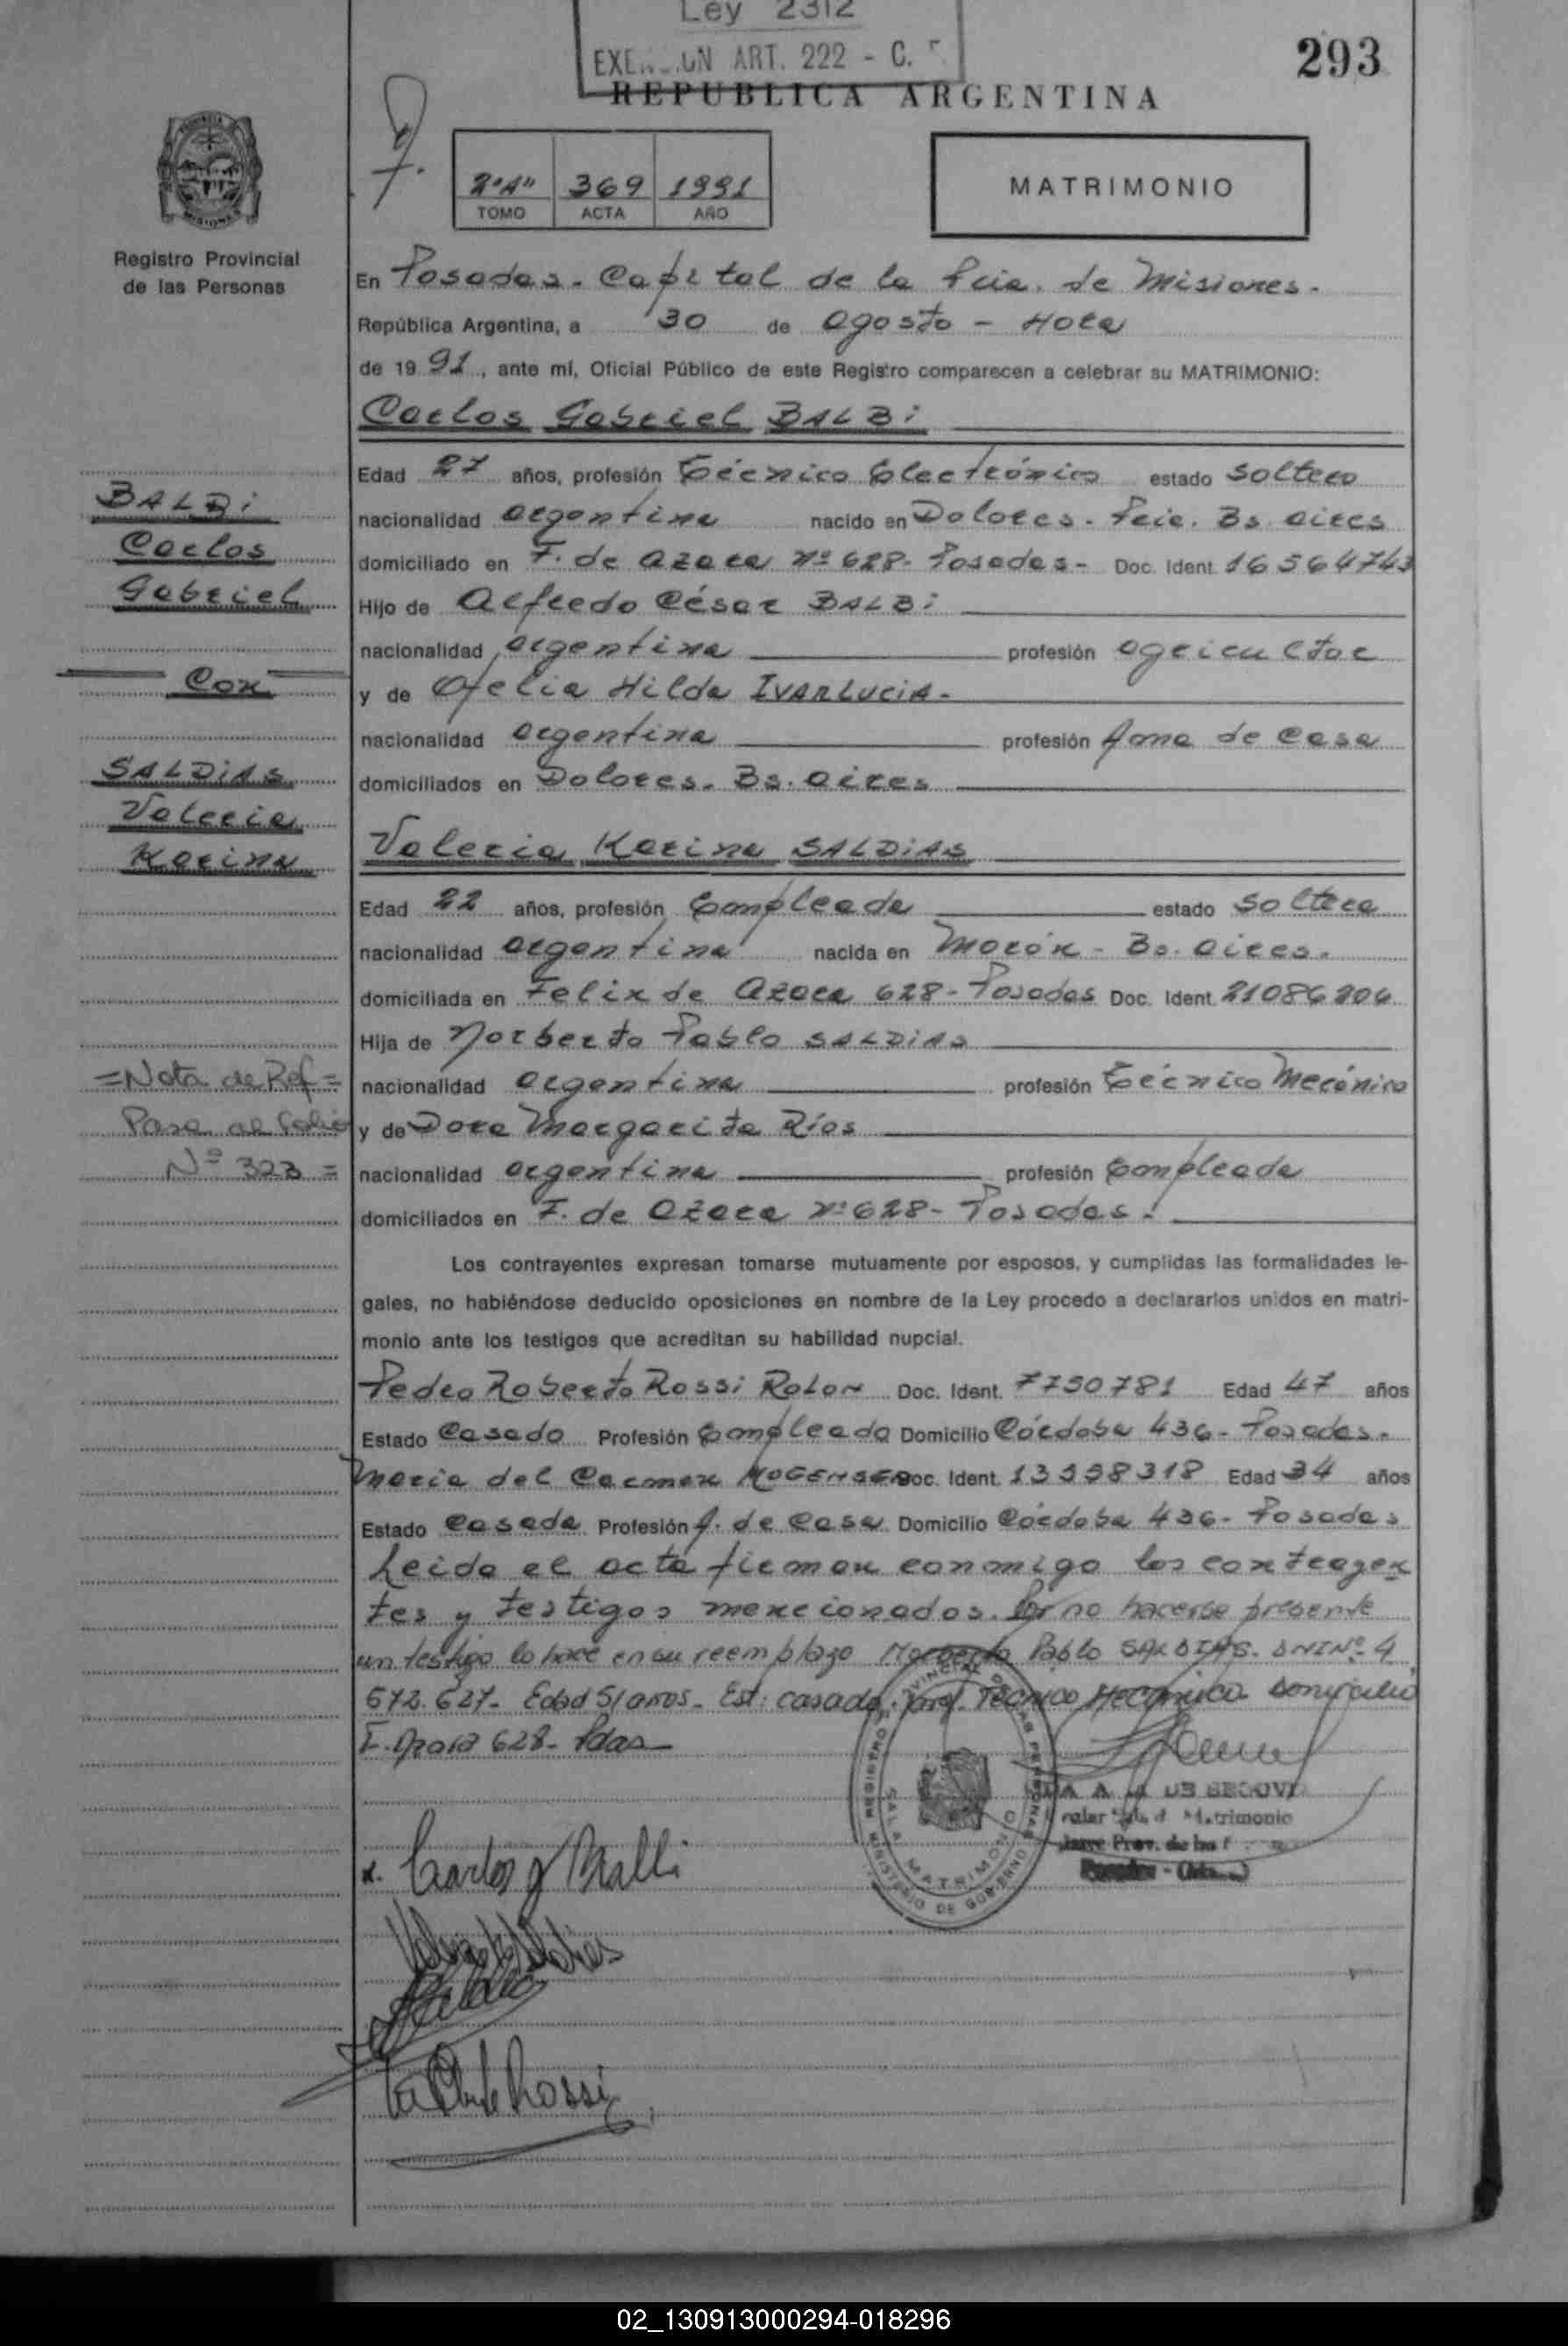 Ley 2312
ART. 222 - C.
293
REPUBLICA ARGENTINA
2º"A" 369 1991
TOMO ACTA AÑO
MATRIMONIO
Registro Provincial
de las Personas
En Posadas. Capital de la Pcia. de Misiones.
República Argentina, a 30 de agosto - Hora
de 1991, ante mí, Oficial Público de este Registro comparecen a celebrar su MATRIMONIO:
Carlos Gabriel BALBi
Edad 27 años, profesión Técnico Electrónico estado soltero
BALBi
nacionalidad argentina nacido en Dolores. Pcia. Bs. Aires
Carlos
domiciliado en F. de Azara Nº 628. Posadas- Doc. Ident. 16564743
Gabriel
Hijo de Alfredo César BALBi
nacionalidad argentina profesión agricultor
Con
y de Ofelia Hilda IVARLUCIA.
nacionalidad argentina profesión Ama de Casa
SALDiAS
domiciliados en Dolores. Bs. Aires
Valeria
Karina
Valeria Karina SALDiAS
Edad 22 años, profesión Empleada estado soltera
nacionalidad argentina nacida en Morón - Bs. Aires.
domiciliada en Felix de Azara 628- Posadas Doc. Ident. 21086206
Hija de Norberto Pablo SALDiAS
=Nota de Ref=
nacionalidad argentina profesión Técnico Mecánico
Pasa al folio
y de Dora Margarita Ríos
Nº 323 =
nacionalidad argentina profesión Empleada
domiciliados en F. de Azara Nº 628- Posadas.
Los contrayentes expresan tomarse mutuamente por esposos, y cumplidas las formalidades le-
gales, no habiéndose deducido oposiciones en nombre de la Ley procedo a declararlos unidos en matri-
monio ante los testigos que acreditan su habilidad nupcial.
Pedro Roberto Rossi Rolon Doc. Ident. 7750781 Edad 47 años
Estado Casado Profesión Empleado Domicilio Córdoba 436- Posadas.
Maria del Carmen MOGENSEN Doc. Ident. 13558318 Edad 34 años
Estado Casada Profesión A. de Casa Domicilio Córdoba 436- Posadas
Leida el acta firman conmigo los contrayen
tes y testigos mencionados. Por no hacerse presente
un testigo lo hace en su reemplazo Norberto Pablo SALDIAS. DNI Nº 4
572.627- Edad 51 anos- Est: casado. prof. Técnico Mecánico Domicilio
F. Azara 628- Pdas
REGISTRO PROVINCIAL DE LAS PERSONAS
SALA MATRIMONIO
MINISTERIO DE GOBIERNO
DE SEGOVIA
Matrimonio
Carlos G Balbi
Rossi
02_130913000294-018296